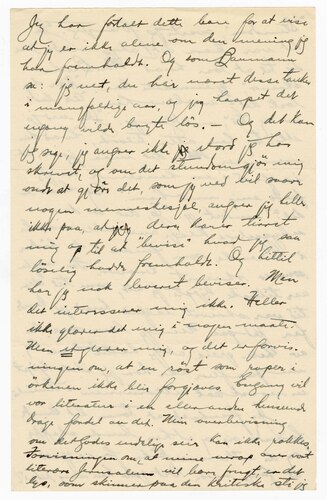 Jeg har fortalt dette bare for at vise
at jeg er ikke alene om den mening jeg
har fremholdt. Og som Baumann
sa: jeg vet, du har næret disse tanker
i mangfoldige aar, og jeg haapet det
engang vilde bryte løs. — Og det kan
jeg si, jeg angrer ikke et ord jeg har
skrevet, og om det stundom gjør mig
ondt at gjøre det, som jeg ved vil saare
nogen menneskesjæl, angrer jeg heller
ikke paa, at deres karer tirret
mig op til at "bevise" hvad jeg saa
løselig hadde fremholdt. Og hittil
har jeg not leveret beviser. Men
det interesserer mig ikke. Heller
ikke glæder det mig i nogen maate.
Men et glæder mig, og det er forvis-
ningen om, at en røst som raaper i
ørkenen ikke blir forgjæves. Engang vil
vor literatur i en eller anden henseende
drage fordel av det. Min overbevisning
om det godes endelige seir kan ikke rokkes,
forvisningen om, at mine verop over vort
literære Jerusalem vil bære frugt, er det
lys, som skinner paa den kritiske sti jeg